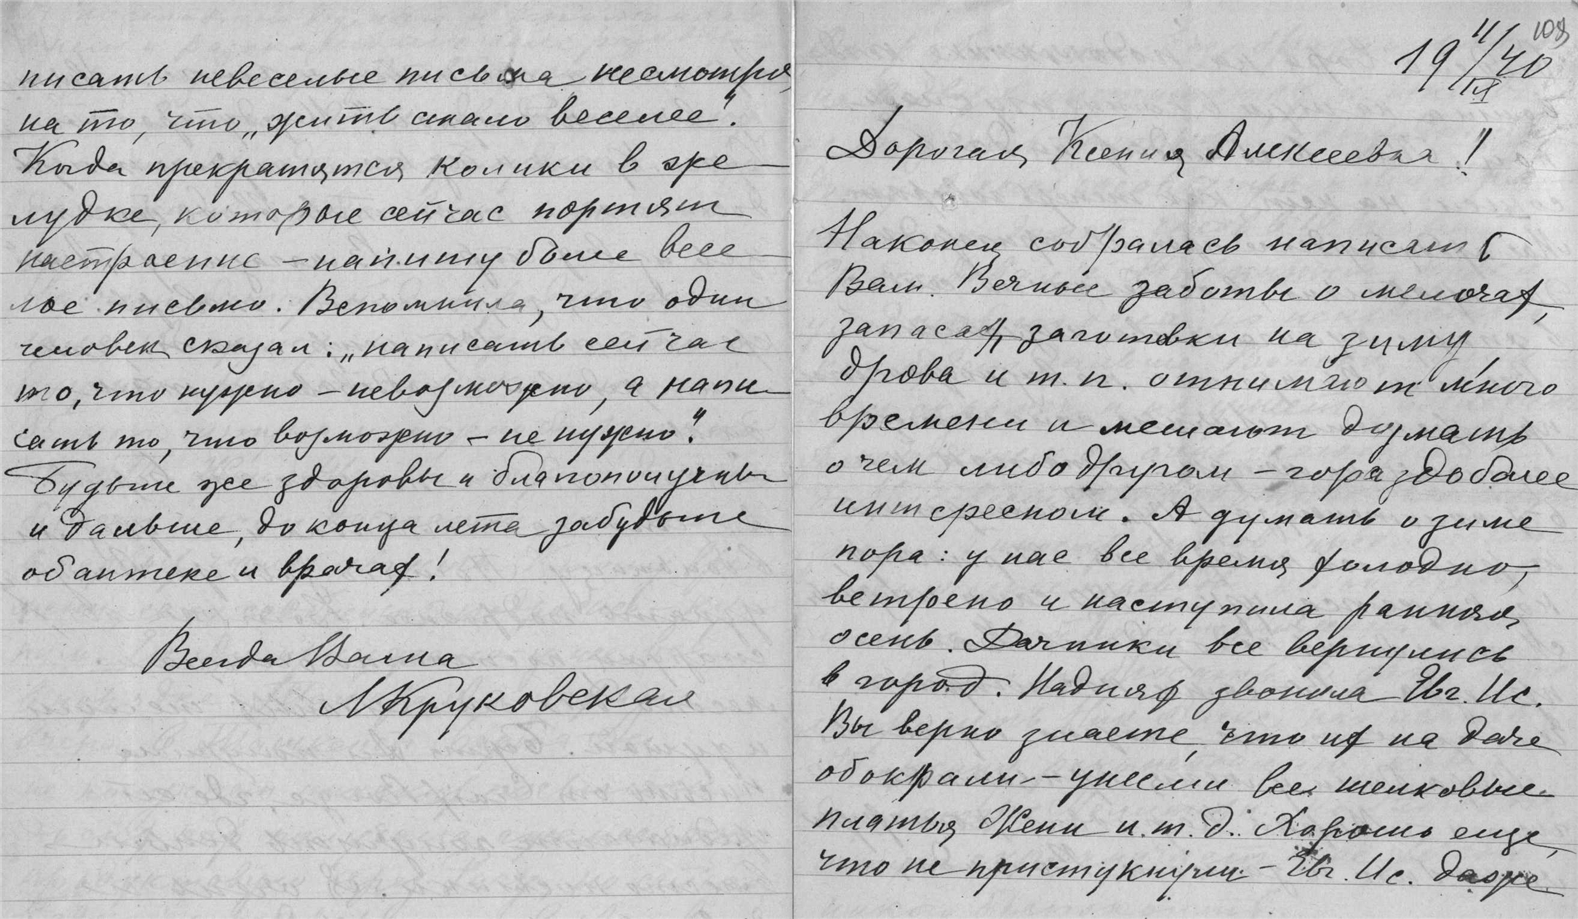 писать невеселые письма несмотря
на то, что „жить стало веселее".
Когда прекратятся колики в же-
лудке, которые сейчас портят
настроение – напишу более весе-
лое письмо. Вспомнила, что один
человек сказал: „написать сейчас
то, что нужно – невозможно, а напи-
сать то, что возможно – не нужно".
Будьте же здоровы и благополучны
и дальше, до конца лета забудьте
об аптеке и врачах!
Всегда Ваша
МКруковская
108
19 4/IX 40
Дорогая Ксения Алексеевна!
Наконец собралась написать
Вам. Вечные заботы о мелочах,
запасах, заготовки на зиму
дрова и т.п. отнимают много
времени и мешают думать
о чем либо другом – гораздо более
интересном. А думать о зиме
пора: у нас все время холодно,
ветрено и наступила ранняя
осень. Дачники все вернулись
в город. На днях звонила Евг. Ис.
Вы верно знаете, что их на даче
обокрали – унесли все шелковые
платья Жени и.т.д. Хорошо еще,
что не пристукнули – Евг. Ис. даже